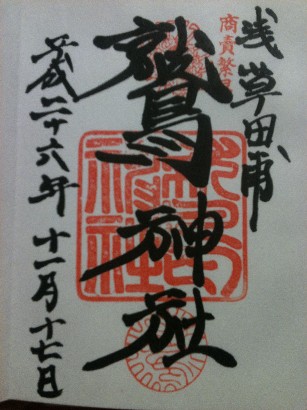 浅草田甫
商賣繁昌
鷲神社
平成二十六年十一月十七日